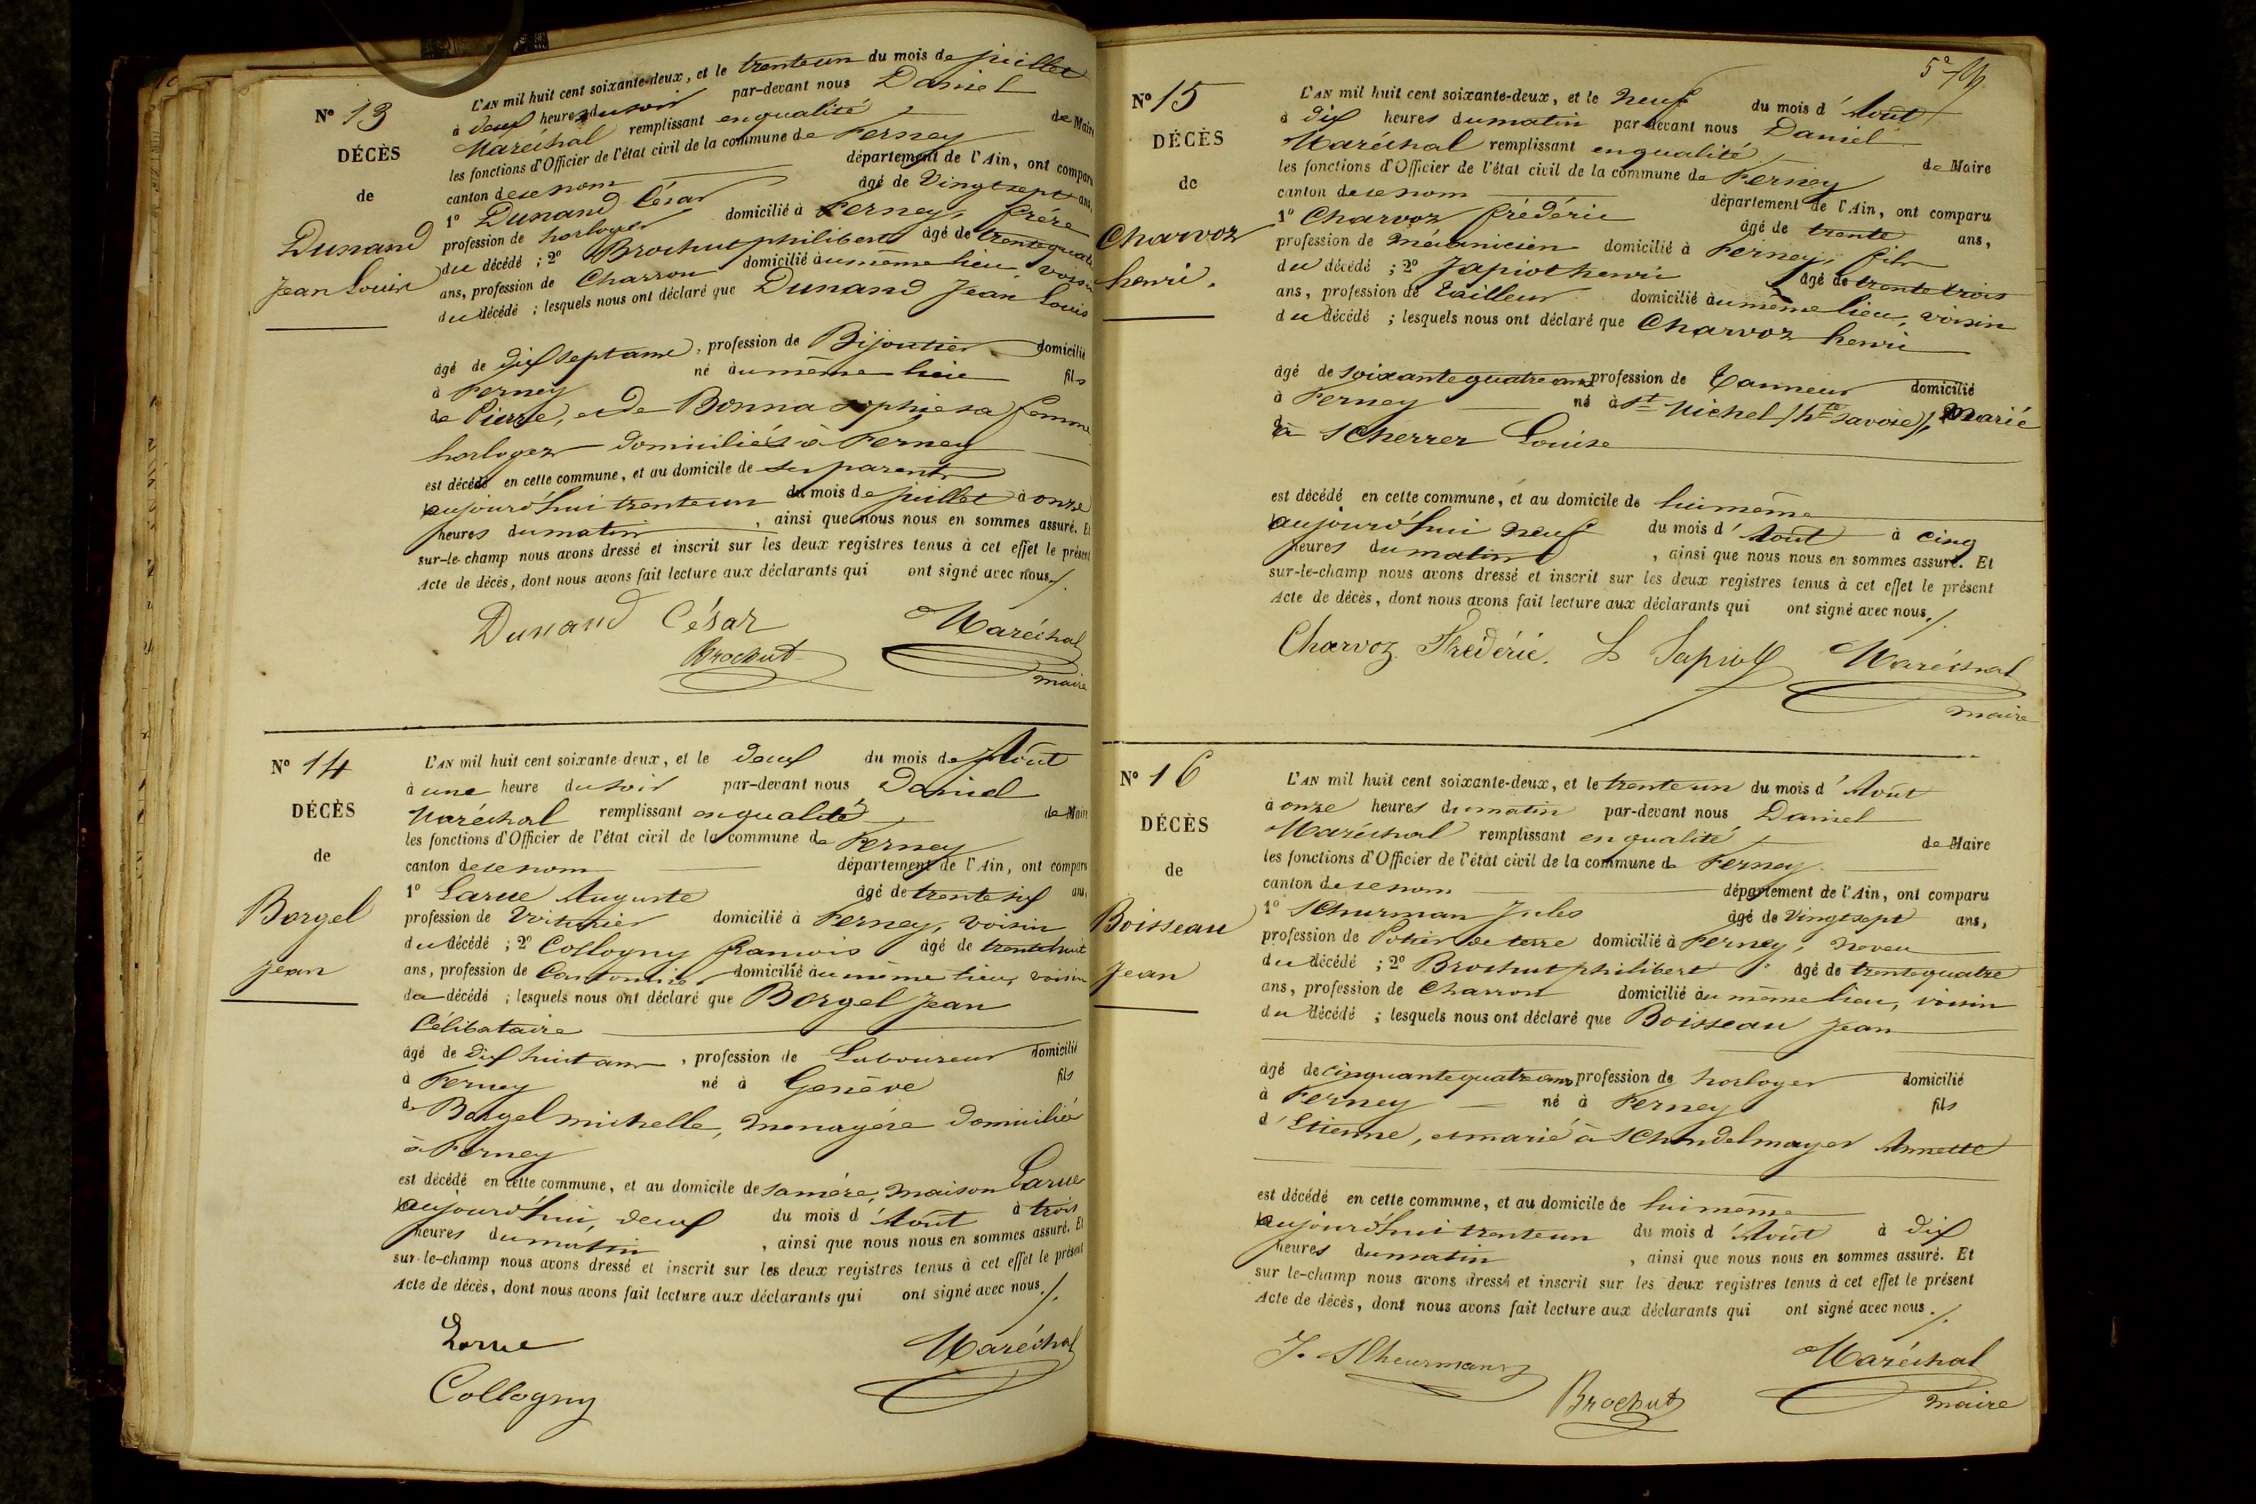 N° 13
DÉCÈS
de
Dunand
Jean Louis
L'AN mil huit cent soixante-deux, et le trente un du mois de juillet
à deux heures du soir par-devant nous Daniel
Maréchal remplissant en qualité de Maire
les fonctions d'Officier de l'état civil de la commune de Ferney
canton de ce nom département de l'Ain, ont comparu
1° Dunand César âgé de Vingt sept ans,
profession de horloger domicilié à Ferney, frère
du décédé ; 2° Brochut philibert âgé de trente quatre
ans, profession de Charron domicilié au même lieu, voisin
du décédé ; lesquels nous ont déclaré que Dunand Jean Louis
âgé de dix sept ans, profession de Bijoutier domicilié
à Ferney né au même lieu fils
de Pierre, et de Bonna Sophie sa femme
horlogers domiciliés à Ferney
est décédé en cette commune, et au domicile de ses parents
aujourd'hui trente un du mois de juillet à onze
heures du matin, ainsi que nous nous en sommes assuré. Et
sur-le-champ nous avons dressé et inscrit sur les deux registres tenus à cet effet le présent
Acte de décès, dont nous avons fait lecture aux déclarants qui ont signé avec nous./.
Dunand César
Maréchal
Brochut
maire
N° 14
DÉCÈS
de
Borgel
Jean
L'AN mil huit cent soixante-deux, et le deux du mois de Août
à une heure du soir par-devant nous Daniel
Maréchal remplissant en qualité de Maire
les fonctions d'Officier de l'état civil de la commune de Ferney
canton de ce nom département de l'Ain, ont comparu
1° Larue Auguste âgé de trente six ans,
profession de Voiturier domicilié à Ferney, voisin
du décédé ; 2° Collogny francois âgé de trente huit
ans, profession de Cantonnier domicilié au même lieu, voisin
du décédé ; lesquels nous ont déclaré que Borgel Jean
Célibataire
âgé de dix huit ans, profession de Laboureur domicilié
à Ferney né à Genève fils
de Borgel michelle, menagère domiciliée
à Ferney
est décédé en cette commune, et au domicile de sa mère, maison Larue
aujourd'hui, deux du mois d'Août à trois
heures du matin, ainsi que nous nous en sommes assuré. Et
sur-le-champ nous avons dressé et inscrit sur les deux registres tenus à cet effet le présent
Acte de décès, dont nous avons fait lecture aux déclarants qui ont signé avec nous./.
Larue
Maréchal
Collogny
N° 15
DÉCÈS
de
Charvoz
henri.
L'AN mil huit cent soixante-deux, et le neuf du mois d'Août
à dix heures du matin par-devant nous Daniel
Maréchal remplissant en qualité de Maire
les fonctions d'Officier de l'état civil de la commune de Ferney
canton de ce nom département de l'Ain, ont comparu
1° Charvoz frédéric âgé de trente ans,
profession de mécanicien domicilié à Ferney, fils
du décédé ; 2° Japiot henri âgé de trente trois
ans, profession de tailleur domicilié au même lieu, voisin
du décédé ; lesquels nous ont déclaré que Charvoz henri
âgé de soixante quatre ans profession de Tanneur domicilié
à Ferney né à St Michel (hte savoie), Marié
à Scherrer Louise
est décédé en cette commune, et au domicile de lui même
aujourd'hui neuf du mois d'Août à cinq
heures du matin, ainsi que nous nous en sommes assuré. Et
sur-le-champ nous avons dressé et inscrit sur les deux registres tenus à cet effet le présent
Acte de décès, dont nous avons fait lecture aux déclarants qui ont signé avec nous./.
Charvoz Frédéric. Japiot Maréchal
maire
N° 16
DÉCÈS
de
Boisseau
Jean
L'AN mil huit cent soixante-deux, et le trente un du mois d'Août
à onze heures du matin par-devant nous Daniel
Maréchal remplissant en qualité de Maire
les fonctions d'Officier de l'état civil de la commune de Ferney
canton de ce nom département de l'Ain, ont comparu
1° Schurman Jules âgé de Vingt sept ans,
profession de Potier de terre domicilié à Ferney, neveu
du décédé ; 2° Brochut philibert âgé de trente quatre
ans, profession de Charron domicilié au même lieu, voisin
du décédé ; lesquels nous ont déclaré que Boisseau Jean
âgé de cinquante quatre ans profession de horloger domicilié
à Ferney né à Ferney fils
d'Etienne, et marié à Schondelmayer Annette
est décédé en cette commune, et au domicile de lui même
aujourd'hui trente un du mois d'Août à dix
heures du matin, ainsi que nous nous en sommes assuré. Et
sur le-champ nous avons dressé et inscrit sur les deux registres tenus à cet effet le présent
Acte de décès, dont nous avons fait lecture aux déclarants qui ont signé avec nous./.
J. Scheurmann
Maréchal
Brochut
maire